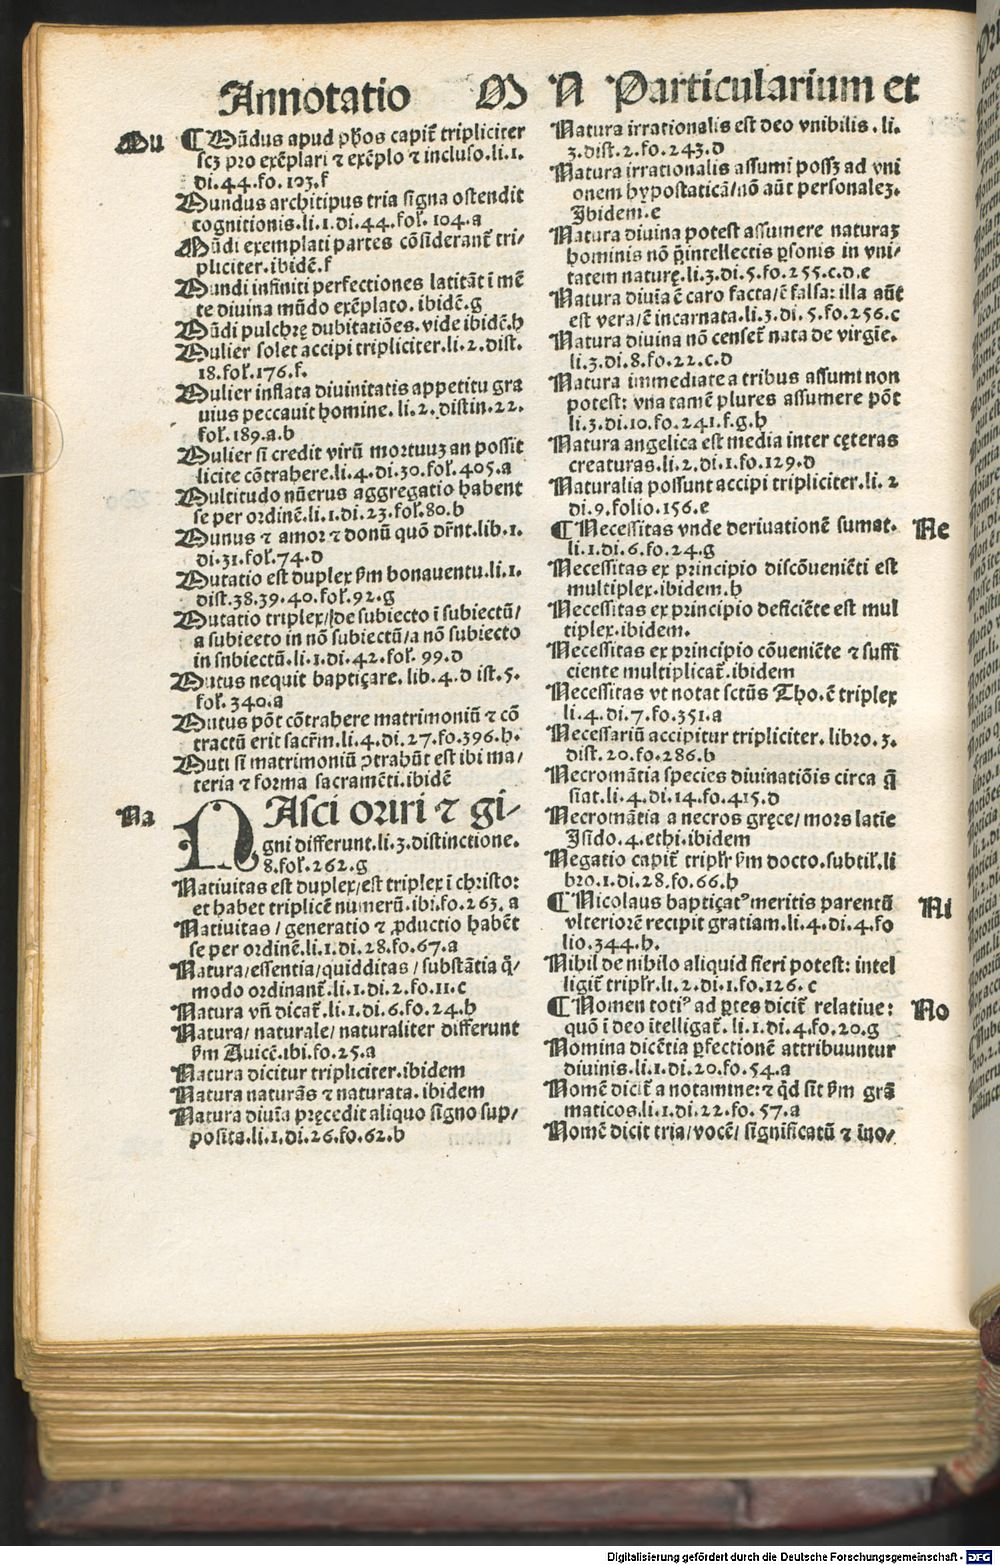 Annotatio M N Particularium et
Mu
¶ Mũdus apud ph̃os capiť tripliciter
scȝ pro exẽplari ⁊ exẽplo ⁊ incluso.li.1.
di.44.fo.103.f
Mundus architipus tria signa ostendit
cognitionis.li.1.di.44.fol. 104.a
Mũdi exemplati partes cõsiderant̃ tri/
pliciter.ibidẽ.f
Mundi infiniti perfectiones latitãt ĩ mẽ
te diuina mũdo exẽplato. ibidẽ.g
Mũdi pulchrę dubitatiões. vide ibidẽ.h
Mulier solet accipi tripliciter.li.2.dist.
18.fol.176.f.
Mulier inflata diuinitatis appetitu gra
uius peccauit homine. li.2.distin.22.
fol.189.a.b
Mulier si credit virũ mortuuȝ an possit
licite cõtrahere.li.4.di.30.fol.405.a
Multitudo nũerus aggregatio habent
se per ordinẽ.li.1.di.23.fol.80.b
Munus ⁊ amor ⁊ donũ quõ dr̃nt.lib.1.
di.31.fol.74.d
Mutatio est duplex ẜm bonauentu.li.1.
dist.38.39.40.fol.92.g
Mutatio triplex/de subiecto ĩ subiectũ/
a subieeto in nõ subiectũ/a nõ subiecto
in snbiectũ.li.1.di.42.fol. 99.d
Mutus nequit baptiçare. lib.4.d ist.5.
fol.340.a
Mutus põt cõtrahere matrimoniũ ⁊ cõ
tractũ erit sacr̃m.li.4.di.27.fo.396.h.
Muti si matrimoniũ ꝯtrahũt est ibi ma/
teria ⁊ forma sacramẽti.ibidẽ
Na
NAsci oriri ⁊ gi/
gni differunt.li.3.distinctione.
8.fol.262.g
Natiuitas est duplex/est triplex ĩ christo:
et habet triplicẽ numerũ.ibi.fo.263.a
Natiuitas/generatio ⁊ ꝓductio habẽt
se per ordinẽ.li.1.di.28.fo.67.a
Natura/essentia/quidditas/substãtia q̃/
modo ordinant̃.li.1.di.2.fo.11.c
Natura vñ dicat̃.li.1.di.6.fo.24.h
Natura/naturale/naturaliter differunt
ẜm Auicẽ.ibi.fo.25.a
Natura dicitur tripliciter.ibidem
Natura naturãs ⁊ naturata.ibidem
Natura diuĩa pręcedit aliquo signo sup/
posita.li.1.di.26.fo.62.b
Natura irrationalis est deo vnibilis.li.
3.dist.2.fo.243.d
Natura irrationalis assumi possȝ ad vni
onem hypostaticã/nõ aũt personaleȝ.
Ibidem.e
Natura diuina potest assumere naturaȝ
hominis nõ p̃intellectis ꝑsonis in vni/
tatem naturę.li.3.di.5.fo.255.c.d.e
Natura diuĩa ẽ caro facta/ẽ falsa: illa aũt
est vera/ẽ incarnata.li.3.di.5.fo.256.c
Natura diuina nõ censet̃ nata de virgĩe.
li.3.di.8.fo.22.c.d
Natura immediate a tribus assumi non
potest: vna tamẽ plures assumere põt
li.3.di.10.fo.241.f.g.h
Natura angelica est media inter cęteras
creaturas.li.2.di.1.fo.129.d
Naturalia possunt accipi tripliciter.li. 2
di.9.folio.156.e
¶ Necessitas vnde deriuationẽ sumat. Ne
li.1.di.6.fo.24.g
Necessitas ex principio discõueniẽti est
multiplex.ibidem.h
Necessitas ex principio deficiẽte est mul
tiplex.ibidem.
Necessitas ex principio cõueniẽte ⁊ suffi
ciente multiplicat̃.ibidem
Necessitas vt notat sctũs Tho.ẽ triplex
li.4.di.7.fo.351.a
Necessariũ accipitur tripliciter. libro.3.
dist.20.fo.286.b
Necromãtia species diuinatiõis circa q̃
fiat.li.4.di.14.fo.415.d
Necromãtia a necros gręce/mors latie
Isido.4.ethi.ibidem
Negatio capit̃ tripl̃r ẜm docto.subtil̃.li
bro.1.di.28.fo.66.h
¶ Nicolaus baptiçatꝰ meritis parentũ Ni
vlteriorẽ recipit gratiam.li.4.di.4.fo
lio.344.h.
Nihil de nihilo aliquid fieri potest: intel
ligit̃ tripl̃r.li.2.di.1.fo.126.c
¶ Nomen totiꝰ ad ꝑtes dicit̃ relatiue: No
quõ ĩ deo ĩtelligat̃. li.1.di.4.fo.20.g
Nomina dicẽtia ꝑfectionẽ attribuuntur
diuinis.li.1.di.20.fo.54.a
Nomẽ dicit̃ a notamine:⁊ q̃d sit ẜm grã
maticos.li.1.di.22.fo. 57.a
Nomẽ dicit tria/vocẽ/significatũ ⁊ ĩno/
Digitalisierung gefördert durch die Deutsche Forschungsgemeinschaft - DFG